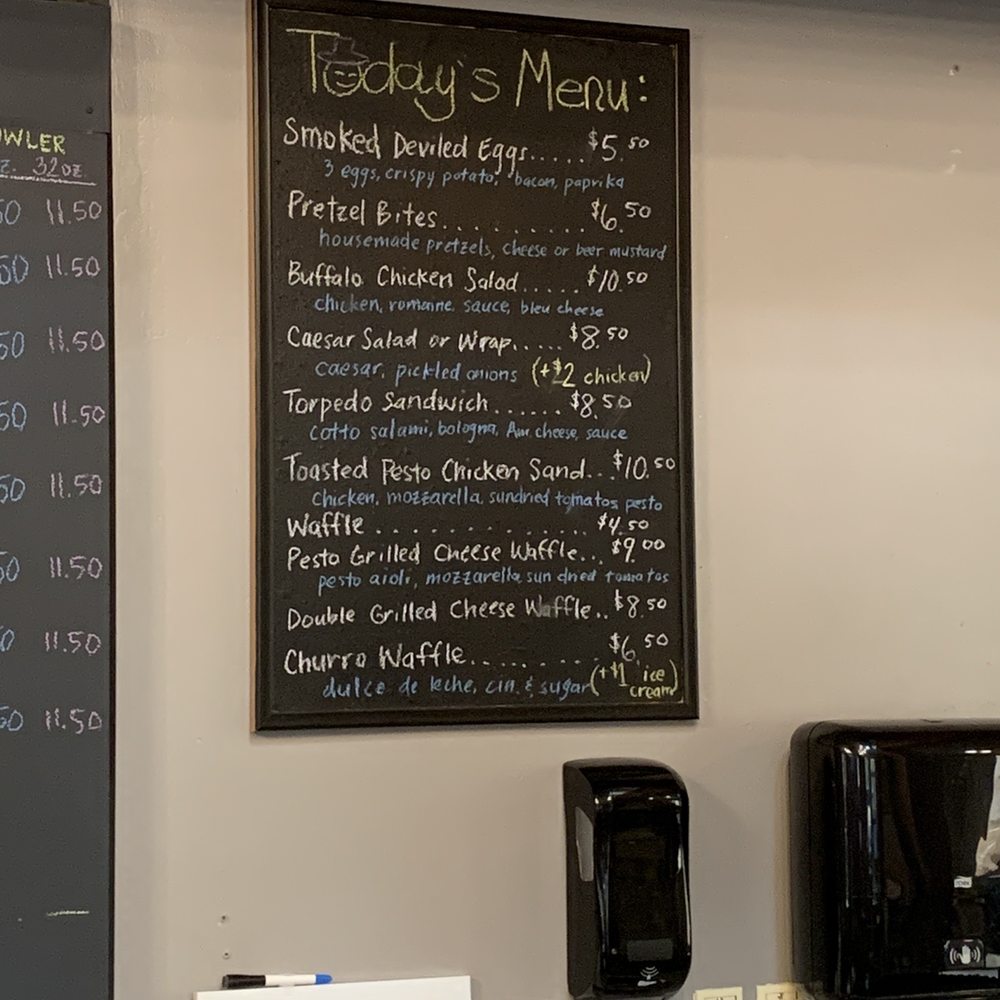 Today's Menu:
Smoked Deviled Eggs..... $5.50
3 eggs, crispy potato, bacon, paprika
Pretzel Bites.......... $6.50
housemade pretzels, cheese or beer mustard
Buffalo Chicken Salad..... $10.50
chicken, romaine, sauce, bleu cheese
Caesar Salad or Wrap..... $8.50
caesar, pickled onions (+$2 chicken)
Torpedo Sandwich...... $8.50
cotto salami, bologna, Am cheese, sauce
Toasted Pesto Chicken Sand.. $10.50
chicken, mozzarella, sundried tomatos pesto
Waffle ............ $4.50
Pesto Grilled Cheese Waffle.. $9.00
pesto aioli, mozzarella, sun dried tomatos
Double Grilled Cheese Waffle.. $8.50
Churro Waffle........ $6.50
dulce de leche, cin. & sugar (+$1 ice cream)
WLER
Z. 32oz
50 11.50
50 11.50
50 11.50
50 11.50
50 11.50
50 11.50
0 11.50
50 11.50